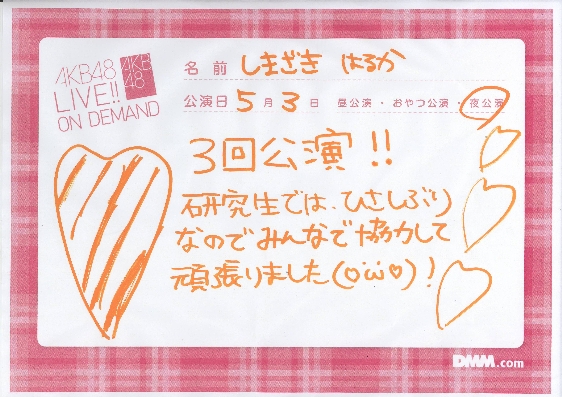 AKB48
LIVE!!
ON DEMAND
AKB
48
名前 しまざき はるか
公演日 5月3日 昼公演・おやつ公演・夜公演
3回公演!!
研究生では、ひさしぶり
なのでみんなで協力して
頑張りました(♡ü♡)!
DMM.com